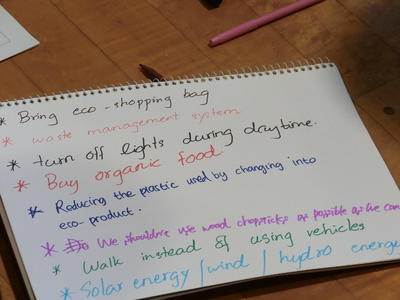 * Bring eco-shopping bag
* waste management system
* turn off lights during daytime.
* Buy organic food
* Reducing the plastic used by changing into
eco-product.
* We shouldn't use wood chopsticks as possible as we can
* Walk instead of using vehicles
* Solar energy / wind / hydro energy